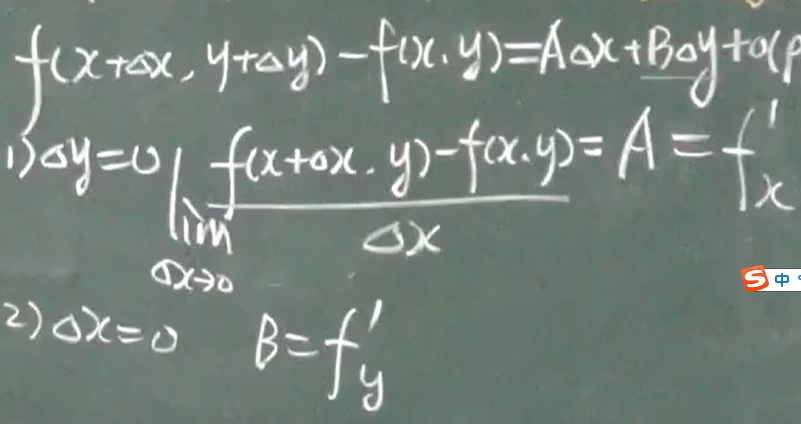 f(x+Δx, y+Δy)-f(x.y)=AΔx+BΔy+o(ρ
1) Δy=0 lim Δx→0 f(x+Δx.y)-f(x.y) / Δx = A = f'x
中
2) Δx=0 B=f'y